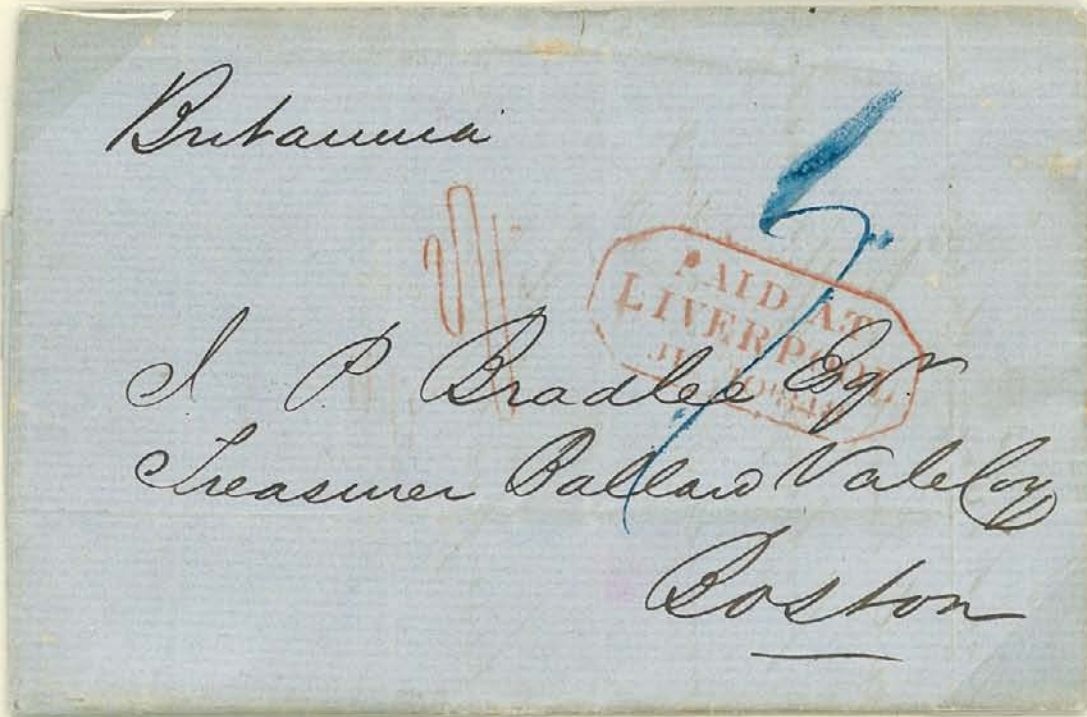 Britannia
PAID AT
LIVERPOOL
J. P. Bradlee Esqr
Treasurer Ballard Vale Coy
Boston